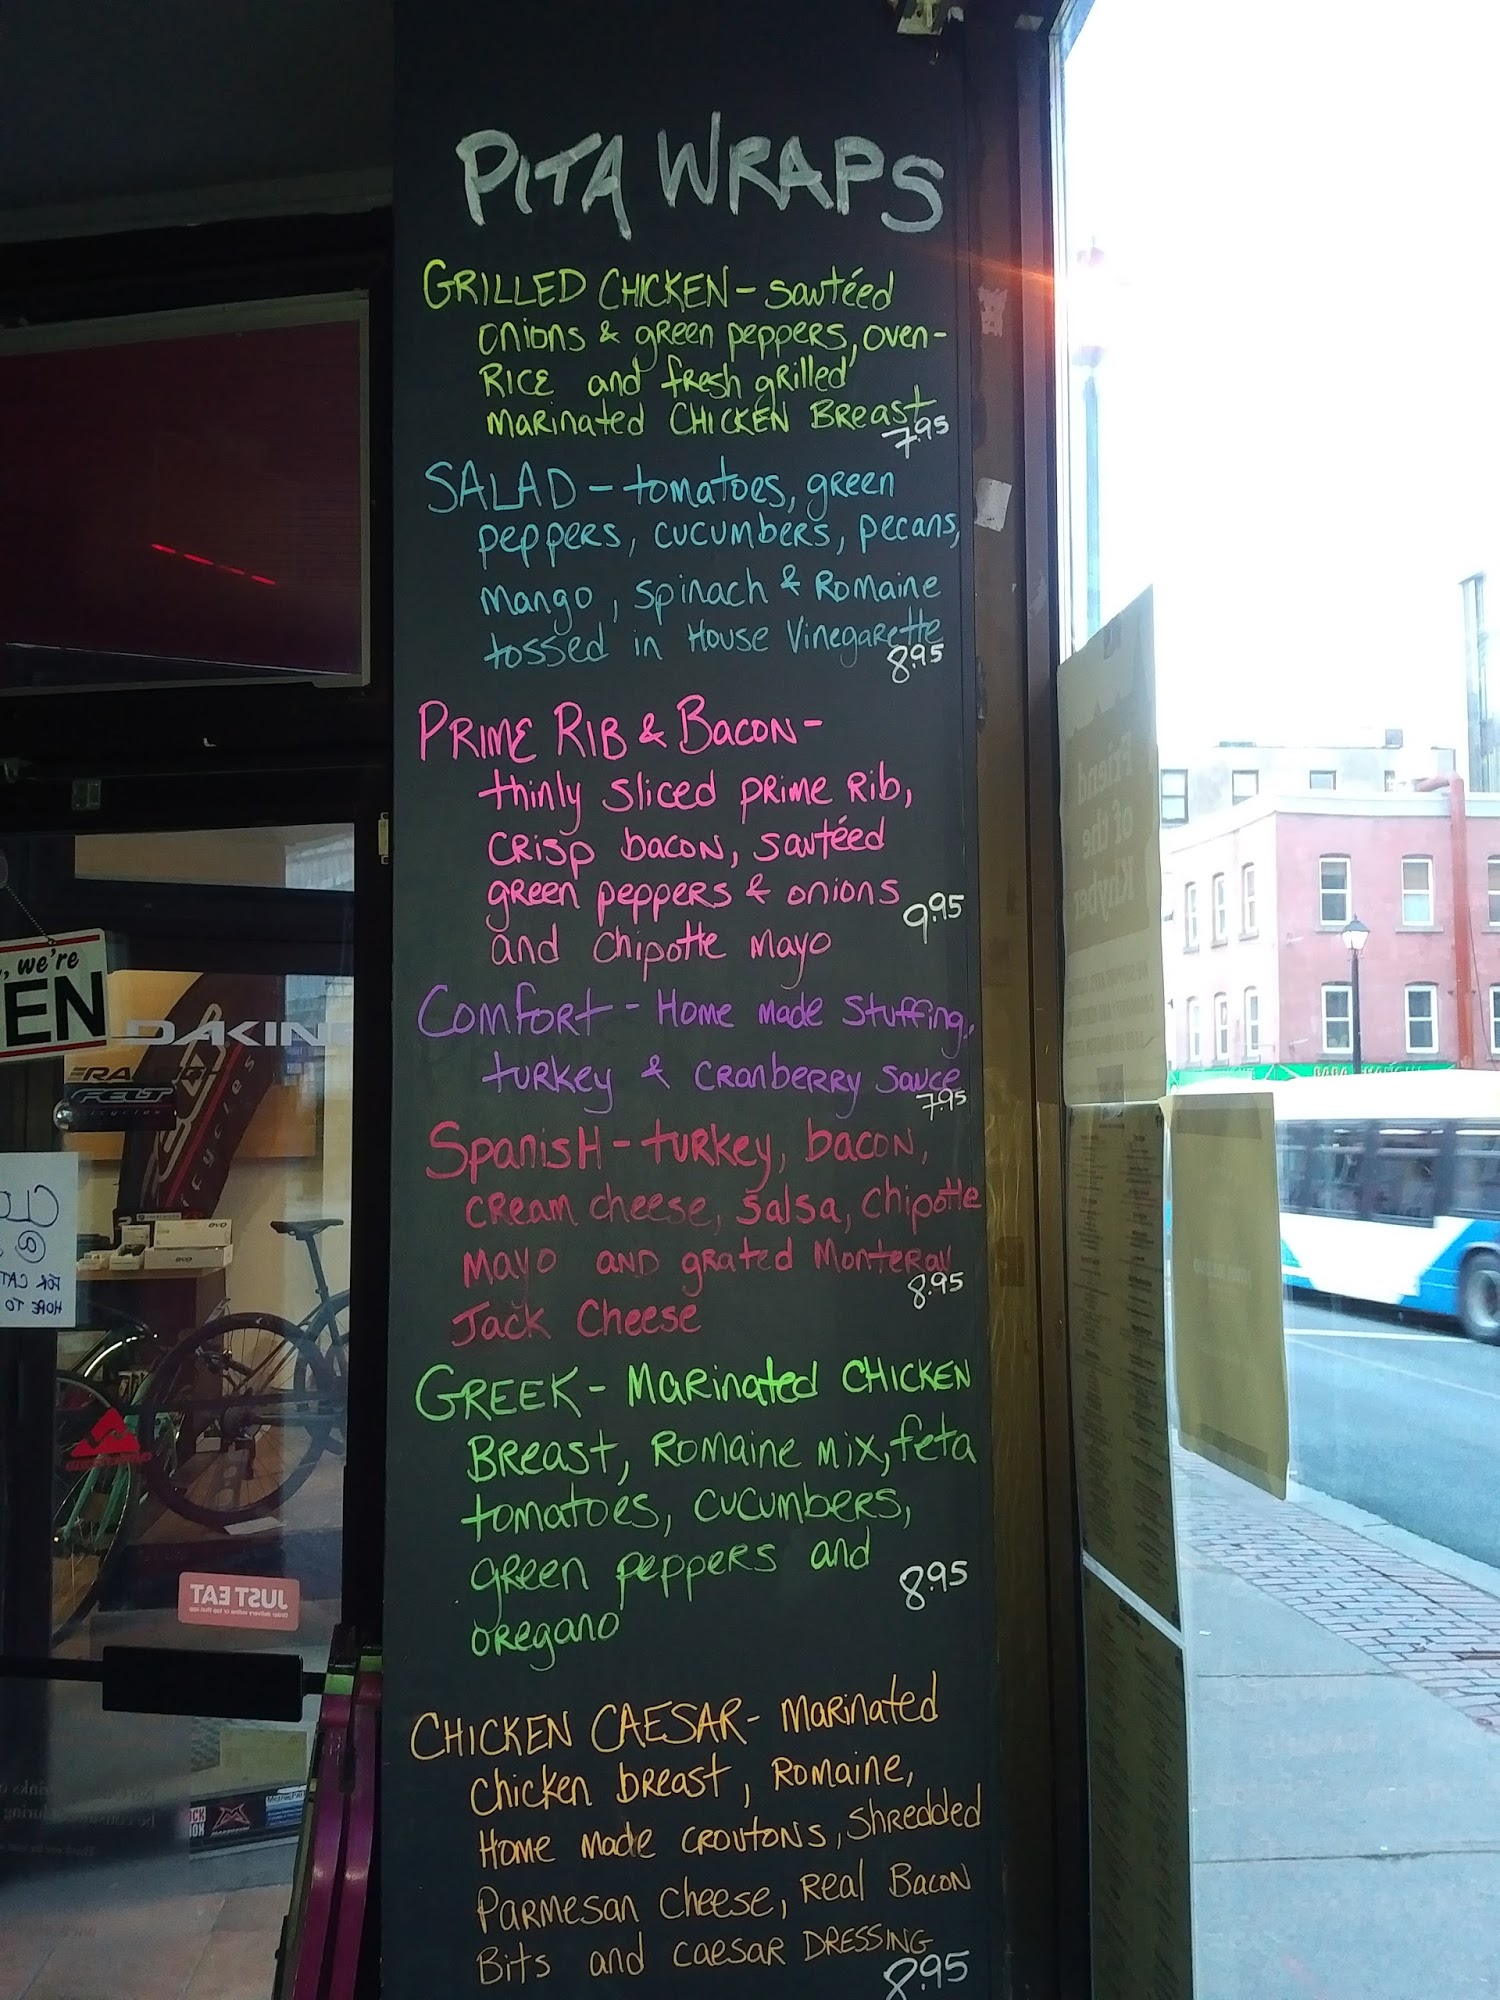 PITA WRAPS
GRILLED CHICKEN - sautéed
onions & green peppers, oven-
RICE and fresh grilled
marinated CHICKEN Breast
7.95
SALAD - tomatoes, green
peppers, cucumbers, pecans,
mango, spinach & Romaine
tossed in House Vinegarette
8.95
PRIME RIB & BACON -
thinly sliced prime rib,
crisp bacon, sautéed
green peppers & onions
9.95
and chipotle mayo
COMFORT - Home made stuffing,
turkey & cranberry sauce
7.95
SPANISH - turkey, bacon,
cream cheese, salsa, chipotle
mayo and grated Monteray
8.95
Jack Cheese
GREEK - Marinated CHICKEN
Breast, Romaine mix, feta
tomatoes, cucumbers,
green peppers and
8.95
oregano
CHICKEN CAESAR - Marinated
chicken breast, Romaine,
Home made croutons, shredded
Parmesan cheese, real Bacon
Bits and caesar DRESSING
8.95
we're
EN
DAKIN
RA
FELT
cycles
EVO
FOR CAT
HOPE TO
JUST EAT
Friend
of the
Khyber